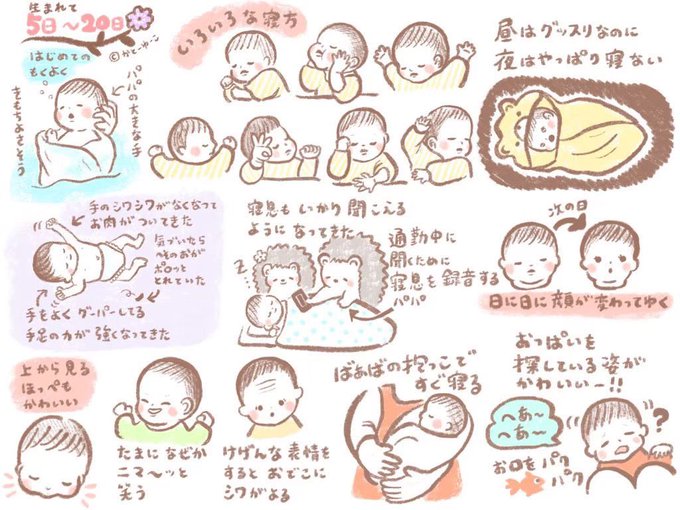 生まれて
5日〜20日
©かとーゆーこ
はじめての
もくよく
パパの大きな手
きもちよさそう
いろいろな寝方
昼はグッスリなのに
夜はやっぱり寝ない
手のシワシワがなくなって
お肉がついてきた
気づいたら
へそのおが
ポロッと
とれていた
手をよくグーパーしてる
手足の力が強くなってきた
寝息もしっかり聞こえる
ようになってきた〜
Z
通勤中に
聞くために
寝息を録音する
パパ
次の日
日に日に顔が変わってゆく
上から見る
ほっぺも
かわいい
たまになぜか
ニマ〜ッと
笑う
けげんな表情を
するとおでこに
シワがよる
ばぁばの抱っこで
すぐ寝る
おっぱいを
探している姿が
かわいいー!!
へあ〜
へあ〜
?
お口をパク
パク